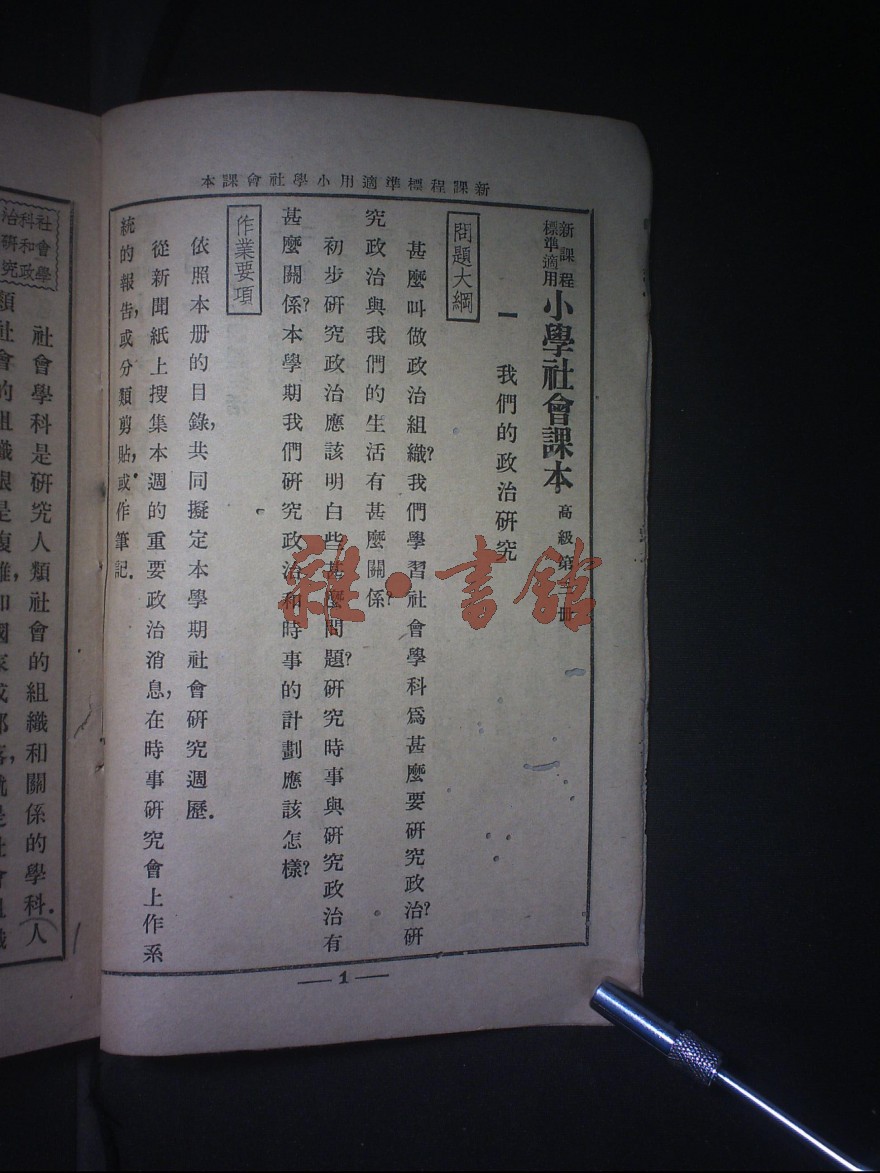 新課程標準適用小學社會課本
新課程標準適用
小學社會課本 高級第 冊
一 我們的政治研究
問題大綱
甚麼叫做政治組織?我們學習社會學科爲甚麼要研究政治?研
究政治與我們的生活有甚麼關係?
初步研究政治應該明白些甚麼問題?研究時事與研究政治有
甚麼關係?本學期我們研究政治和時事的計劃應該怎樣?
作業要項
依照本册的目錄,共同擬定本學期社會研究週歷.
從新聞紙上搜集本週的重要政治消息,在時事研究會上作系
統的報告,或分類剪貼,或作筆記.
—1—
社會學
科和政
治研究
社會學科是研究人類社會的組織和關係的學科.人
類社會的組織很是複雜,如國家或部落,就是社會組織
雜·書館